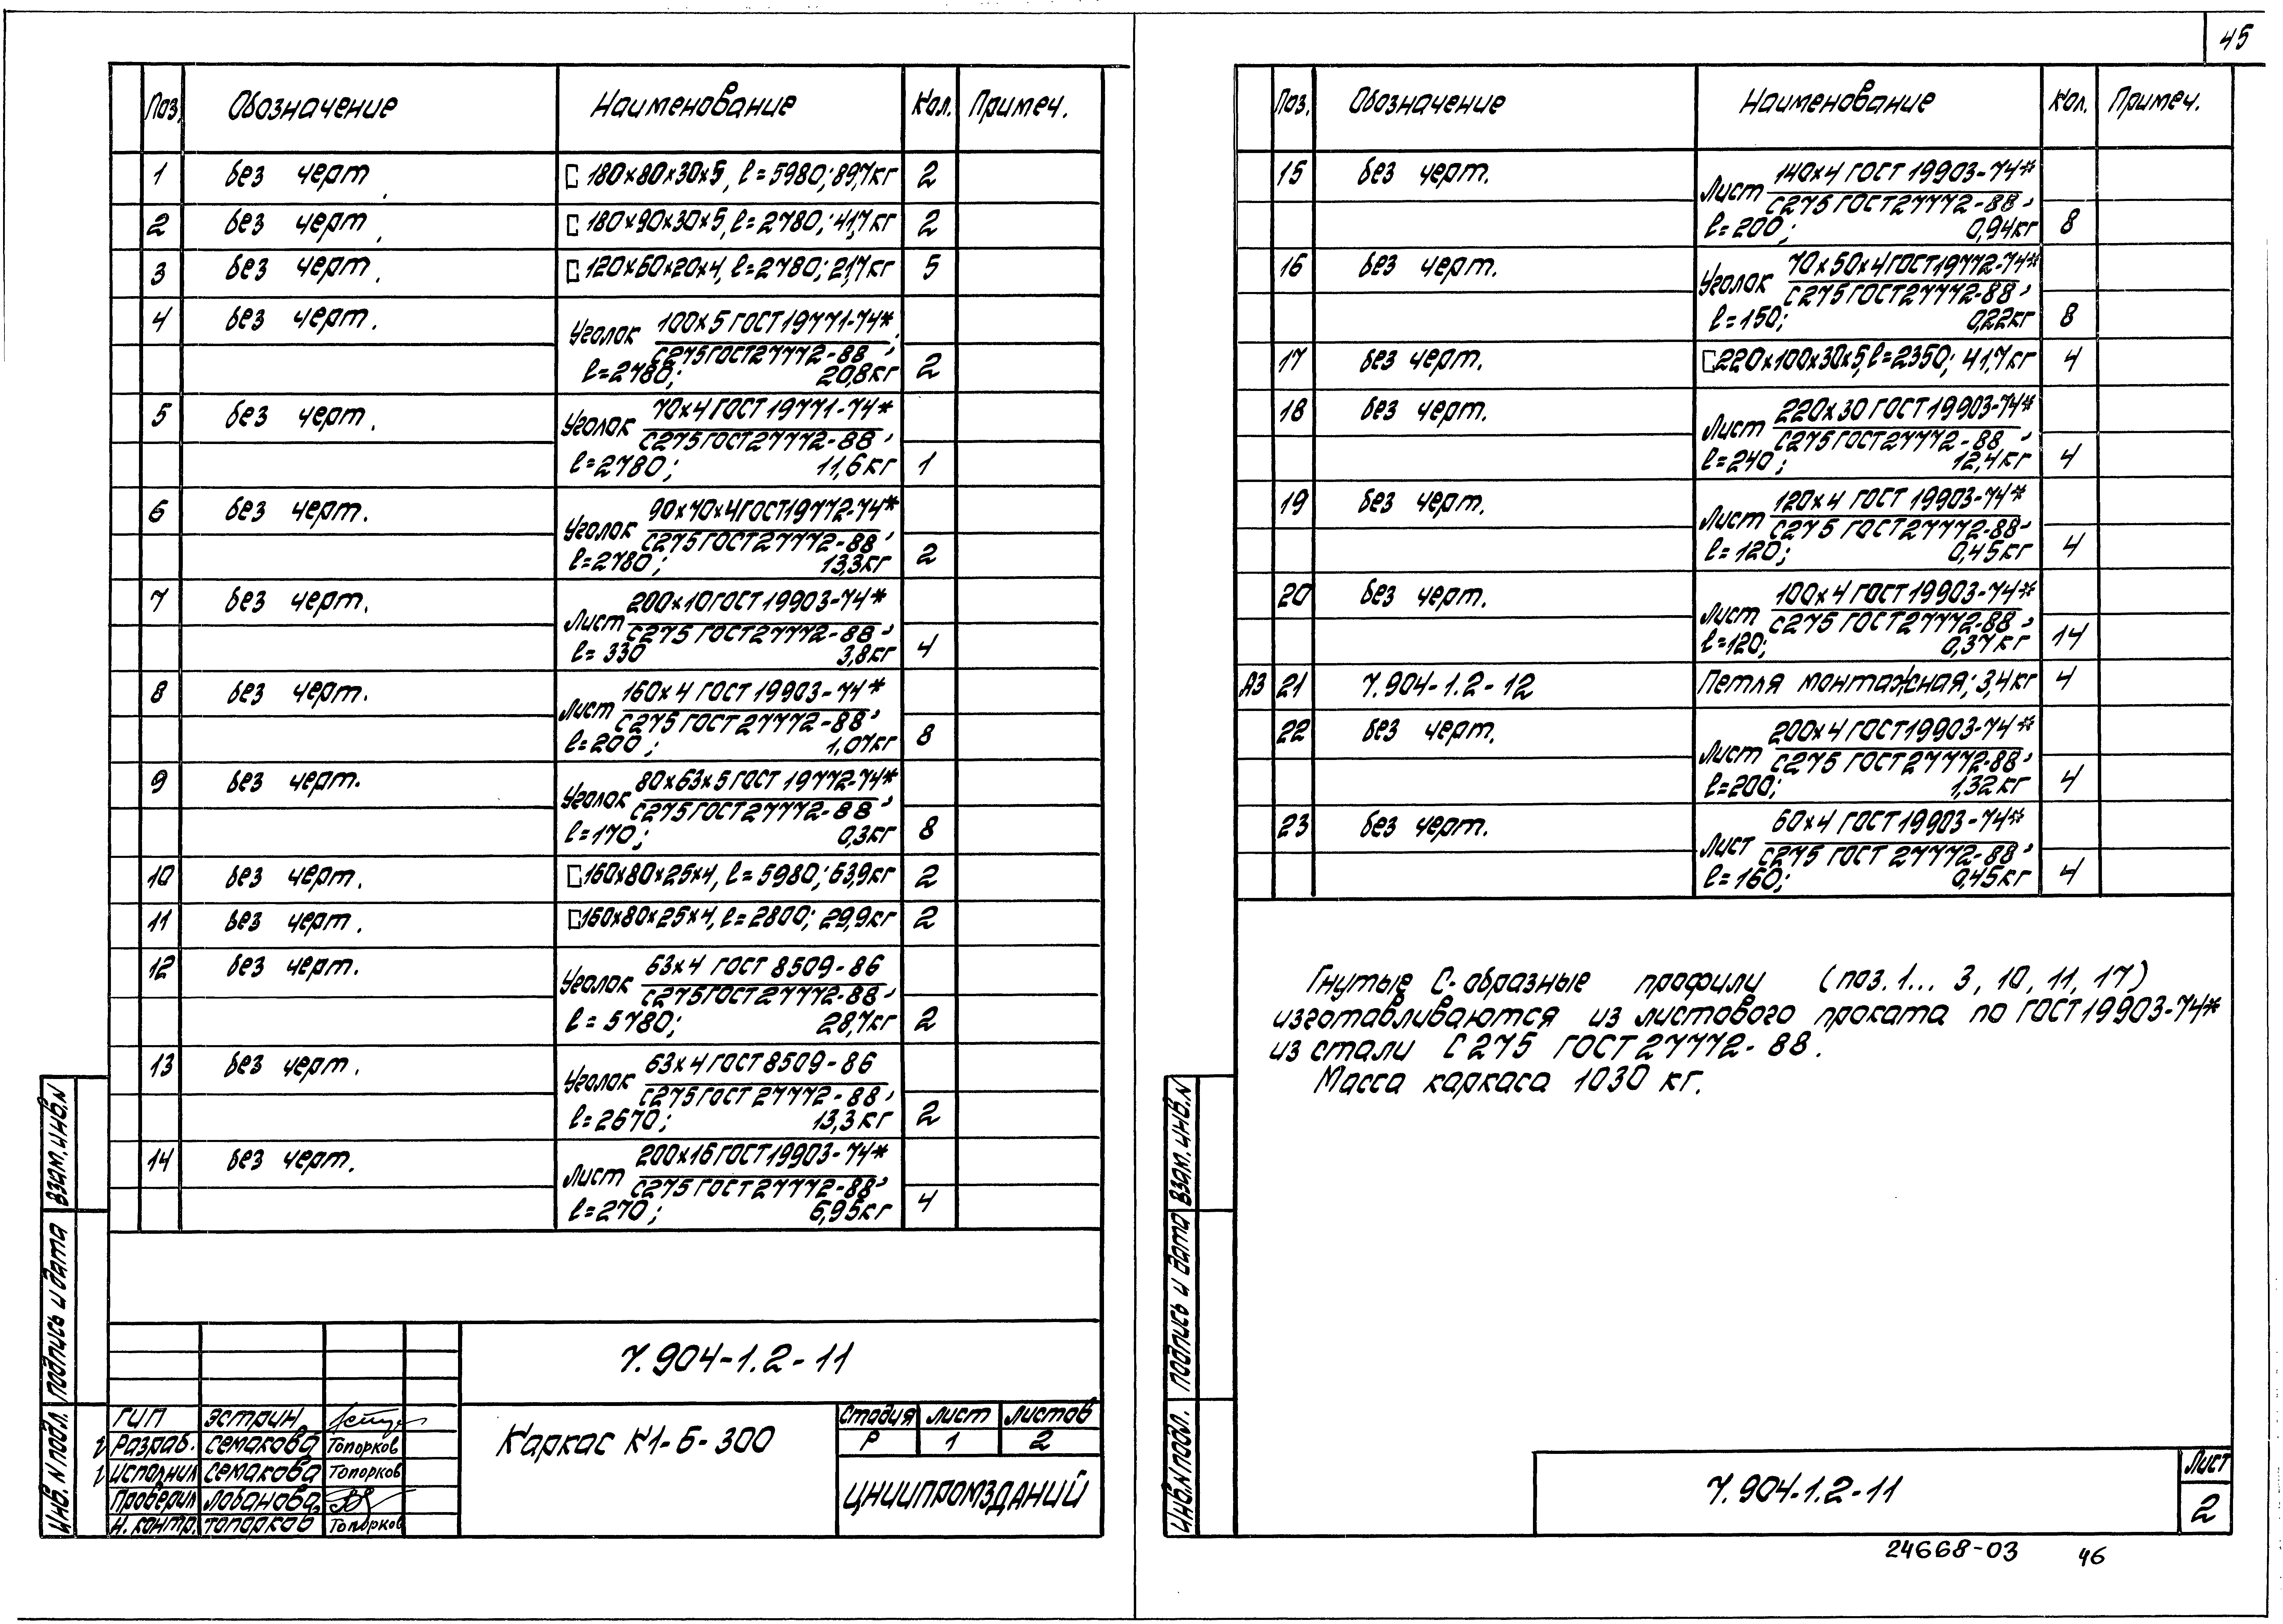 45
Поз. Обозначение Наименование Кол. Примеч.
1 без черт. [ 180×80×30×5, ℓ=5980; 89,7кг 2
2 без черт. [ 180×90×30×5, ℓ=2780; 41,7кг 2
3 без черт. [ 120×60×20×4, ℓ=2780; 21,7кг 5
4 без черт. Уголок 100×5 ГОСТ 19771-74*
С275 ГОСТ 27772-88,
ℓ=2780; 20,8кг 2
5 без черт. Уголок 70×4 ГОСТ 19771-74*
С275 ГОСТ 27772-88,
ℓ=2780; 11,6кг 1
6 без черт. Уголок 90×70×4 ГОСТ 19772-74*
С275 ГОСТ 27772-88,
ℓ=2780; 13,3кг 2
7 без черт. Лист 200×10 ГОСТ 19903-74*
С275 ГОСТ 27772-88,
ℓ=330 3,8кг 4
8 без черт. Лист 160×4 ГОСТ 19903-74*
С275 ГОСТ 27772-88,
ℓ=200; 1,07кг 8
9 без черт. Уголок 80×63×5 ГОСТ 19772-74*
С275 ГОСТ 27772-88,
ℓ=170; 0,3кг 8
10 без черт. [ 160×80×25×4, ℓ=5980; 63,9кг 2
11 без черт. [ 160×80×25×4, ℓ=2800; 29,9кг 2
12 без черт. Уголок 63×4 ГОСТ 8509-86
С275 ГОСТ 27772-88,
ℓ=5780; 28,7кг 2
13 без черт. Уголок 63×4 ГОСТ 8509-86
С275 ГОСТ 27772-88,
ℓ=2670; 13,3кг 2
14 без черт. Лист 200×16 ГОСТ 19903-74*
С275 ГОСТ 27772-88,
ℓ=270; 6,95кг 4
7.904-1.2-11
ГИП Эстрин
Разраб. Семакова Топорков
Исполнил Семакова Топорков
Проверил Лобанова
Н. контр. Топорков Топорков
Каркас К1-6-300
Стадия Лист Листов
Р 1 2
ЦНИИПРОМЗДАНИЙ
Инв. N подл. Подпись и дата Взам. инв. N
Поз. Обозначение Наименование Кол. Примеч.
15 без черт. Лист 140×4 ГОСТ 19903-74*
С275 ГОСТ 27772-88,
ℓ=200; 0,94кг 8
16 без черт. Уголок 70×50×4 ГОСТ 19772-74*
С275 ГОСТ 27772-88,
ℓ=150; 0,22кг 8
17 без черт. [ 220×100×30×5, ℓ=2350; 41,7кг 4
18 без черт. Лист 220×30 ГОСТ 19903-74*
С275 ГОСТ 27772-88,
ℓ=240; 12,4кг 4
19 без черт. Лист 120×4 ГОСТ 19903-74*
С275 ГОСТ 27772-88,
ℓ=120; 0,45кг 4
20 без черт. Лист 100×4 ГОСТ 19903-74*
С275 ГОСТ 27772-88,
ℓ=120; 0,37кг 14
А3 21 7.904-1.2-12 Петля монтажная; 3,4кг 4
22 без черт. Лист 200×4 ГОСТ 19903-74*
С275 ГОСТ 27772-88,
ℓ=200; 1,32кг 4
23 без черт. Лист 60×4 ГОСТ 19903-74*
С275 ГОСТ 27772-88,
ℓ=160; 0,45кг 4
Гнутые С-образные профили (поз. 1... 3, 10, 11, 17)
изготавливаются из листового проката по ГОСТ 19903-74*
из стали С275 ГОСТ 27772-88.
Масса каркаса 1030 кг.
Инв. N подл. Подпись и дата Взам. инв. N
7.904-1.2-11
Лист
2
24668-03 46